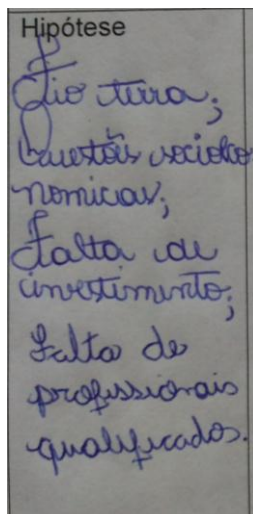 Hipótese
Fio terra;
Questões socioeco
nomicas;
Falta de
investimento;
Falta de
profissionais
qualificados.